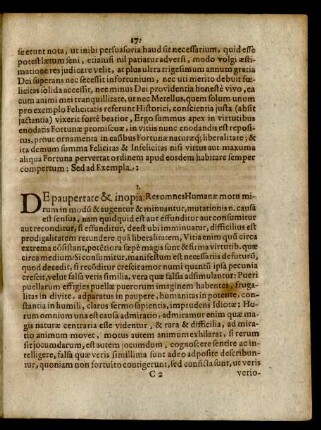 17.
se erunt nota, ut inibi persuasoria haud sit necessarium, quid esse
potest lætum seni, etiamsi nil patiatur adversi, modo volgi æsti-
matione res judicare velit, at plus ultra trigesimum annum gratia
Dei superans nec fecessit infortunium, nec uti merito debuit fœ-
licitas solida accessit, nec minus Dei providentia honestè vivo, ea
cum animi mei tranquillitate, ut nec Metellus, quem solum unum
pro exemplo Felicitatis referunt Historici, conscientia justa (absit
jactantia) vixerit fortè beatior, Ergo summos apex in virtutibus
enodatis Fortunæ promiscuæ, in vitiis nunc enodandis est reposi-
tus, prout ornamenta in casibus Fortunæ naturæq; liberalitate; &
ita demum summa Felicitas & Infelicitas nisi virtus aut maxuma
aliqua Fortuna pervertat ordinem apud eosdem habitare semper
compertum: Sed ad Exempla.:
1.
DE paupertate & inopia. Res omnes Humanæ motu mi-
rum in modũ & augentur & minuuntur, mutationis n. causa
est sensus, nam quidquid est aut effunditur aut consumitur
aut reconditur, si effunditur, deest ubi imminuatur, difficilius est
prodigalitatem retundere quà liberalitatem, Vitia enim quũ circa
extrema cõsistant, potẽtiora sæpè magis sunt & firma virtutib. quæ
circa mediũ; Si consumitur, manifestum est necessariis defuturũ,
quod decedit, si reconditur crescit amor numi quantũ ipsa pecunia
crescit, velut falsâ veris similia, vera quæ falsâ adsimulantur: Pueri
puellarum effigies puellæ puerorum imaginem habentes, fruga-
litas in divite adparatus in paupere, humanitas in potente, con-
stantia in humili, clarus sermo sapientis, imprudens Idiotæ: Ha-
rum omnium una est causa admiratio, admiramur enim quæ ma-
gis naturæ contraria esse videntur, & rara & difficilia, ad mira-
tio animum movet, motus autem animum exhilarat, si rerum
sit jocundarum, est autem jocundum, cognoscere sentire ac in-
telligere, falsâ quæ veris simillima sunt adeo adposite describun-
tur, quoniam non fortuito contigerunt, sed conficta sunt, ut veris
C 2
verio-